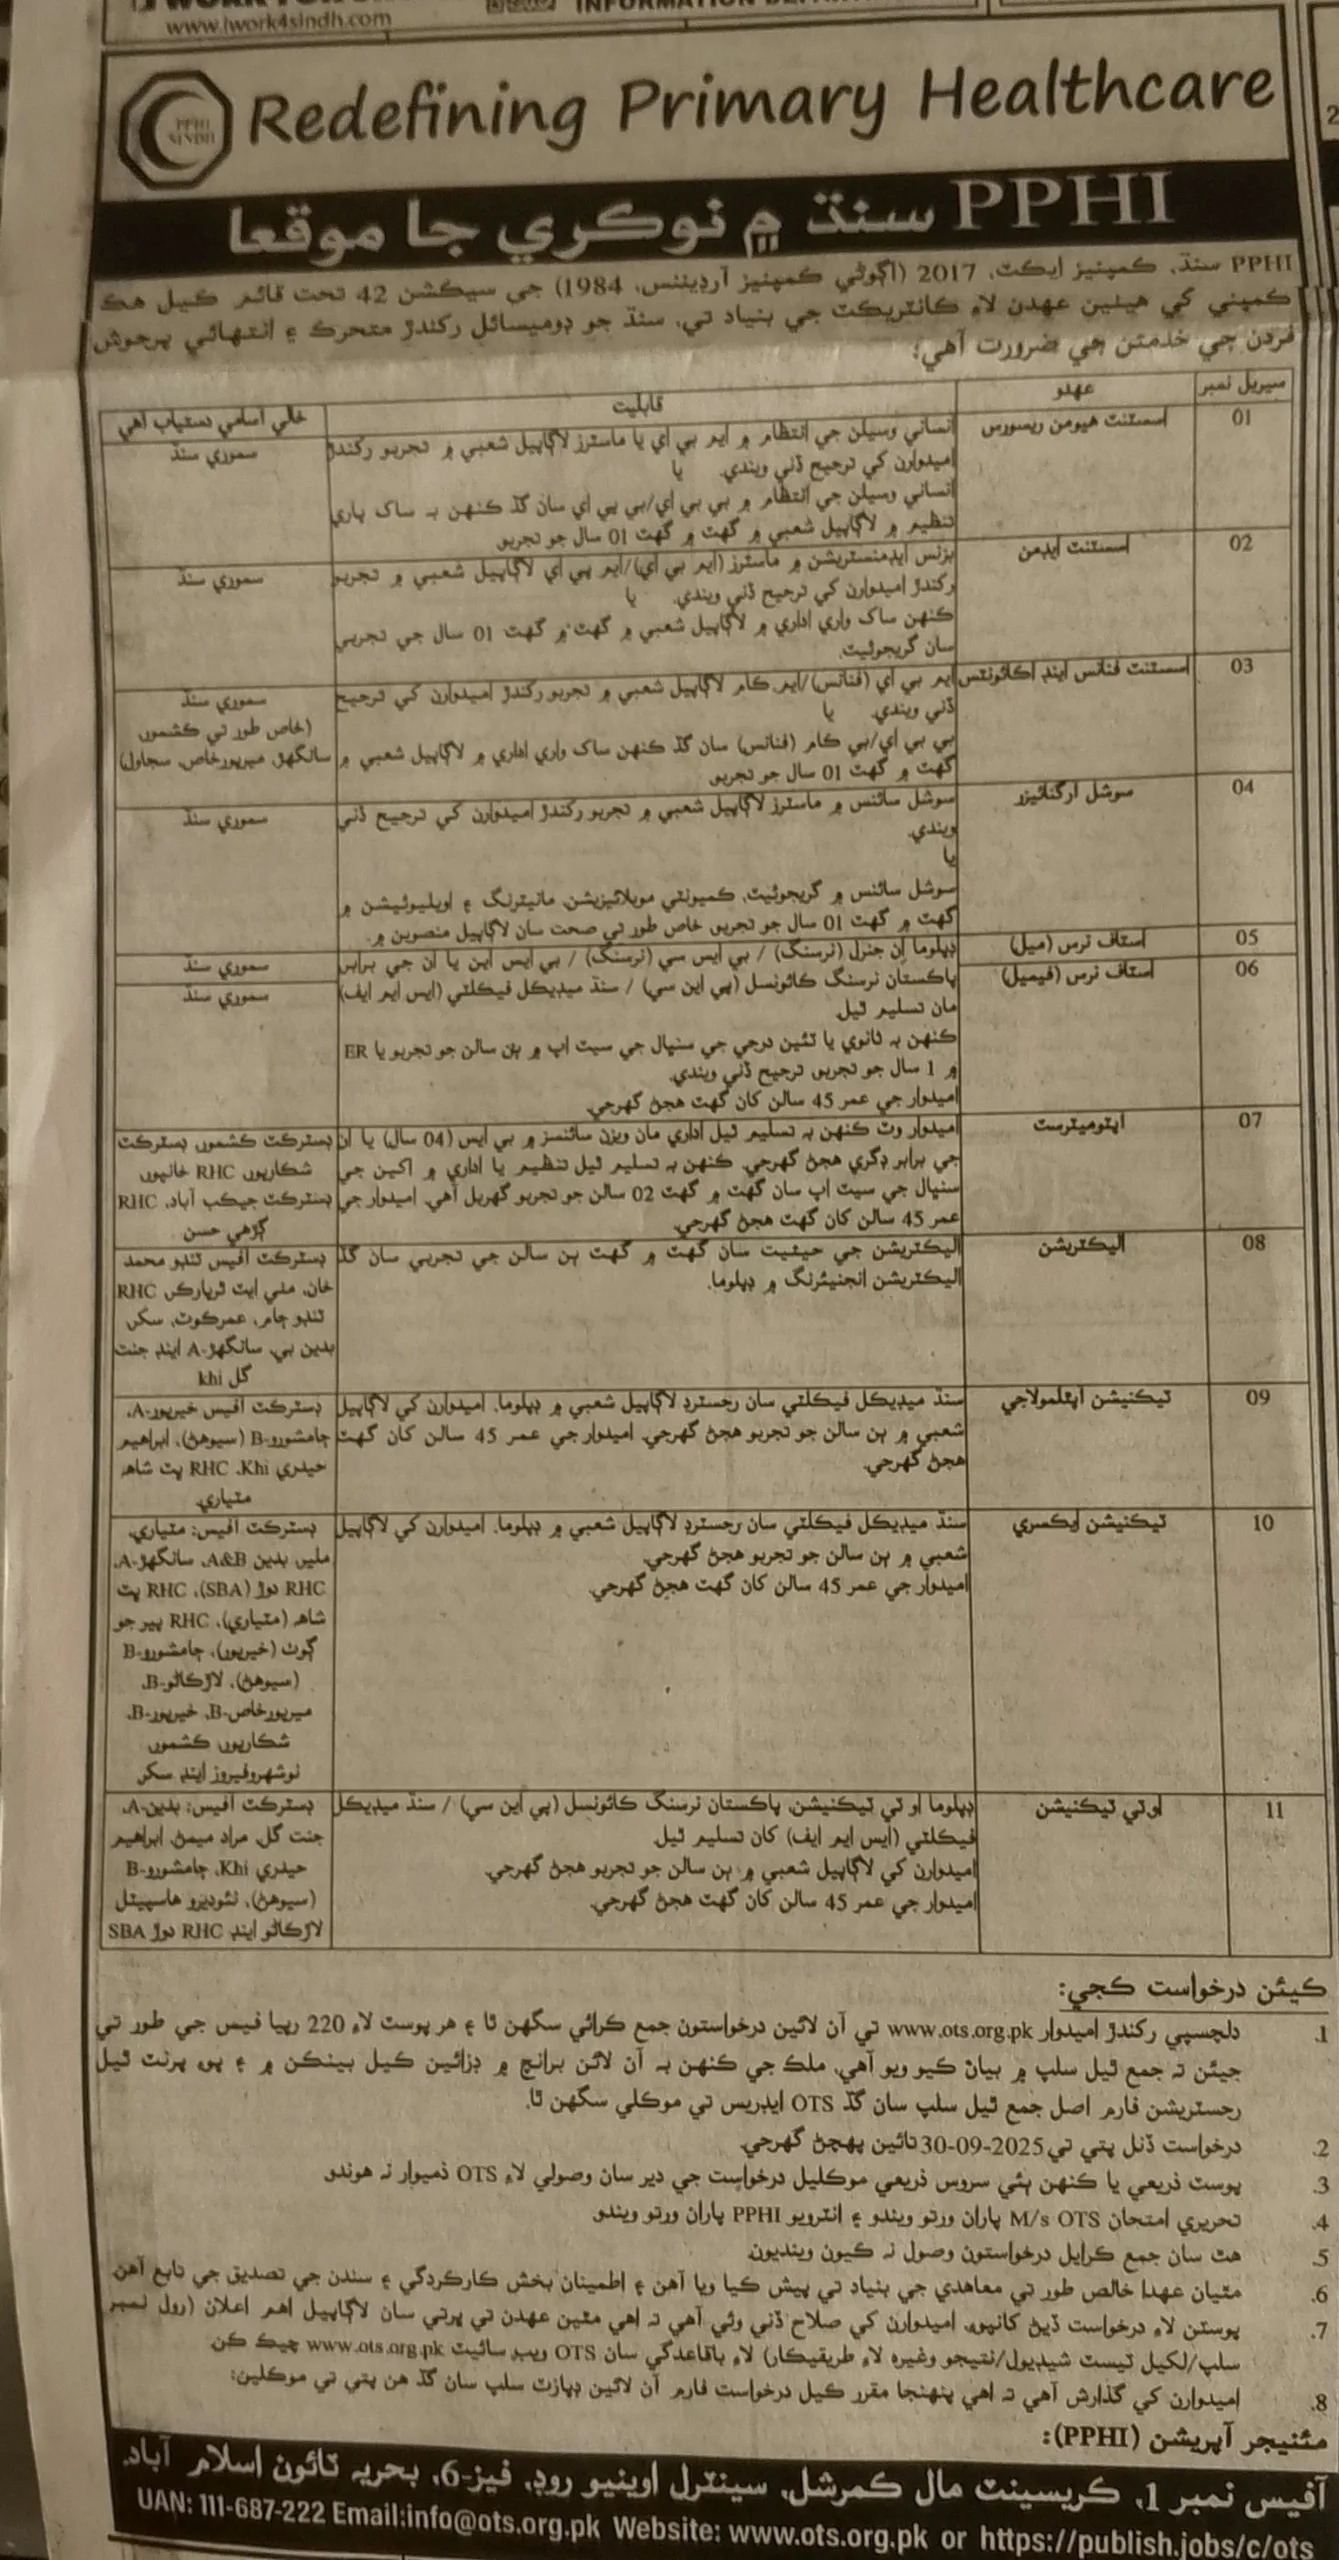 www.iwork4sindh.com
PPHI SINDH
Redefining Primary Healthcare
PPHI سنڌ ۾ نوڪري جا موقعا
PPHI سنڌ، ڪمپنيز ايڪٽ، 2017 (اڳوڻي ڪمپنيز آرڊيننس، 1984) جي سيڪشن 42 تحت قائم ڪيل هڪ
ڪمپني کي هيٺين عهدن لاءِ ڪانٽريڪٽ جي بنياد تي، سنڌ جو ڊوميسائل رکندڙ متحرڪ ۽ انتهائي پرجوش
فردن جي خدمتن جي ضرورت آهي:
سيريل نمبر عهدو قابليت خالي اسامي دستياب آهي
01 اسسٽنٽ هيومن ريسورس انساني وسيلن جي انتظام ۾ ايم بي اي يا ماسٽرز لاڳاپيل شعبي ۾ تجربو رکندڙ سموري سنڌ
اميدوارن کي ترجيح ڏني ويندي. يا
انساني وسيلن جي انتظام ۾ بي بي اي/بي پي اي سان گڏ ڪنهن بہ ساک ڀاري
تنظيم ۾ لاڳاپيل شعبي ۾ گهٽ ۾ گهٽ 01 سال جو تجربو
02 اسسٽنٽ ايڊمن بزنس ايڊمنسٽريشن ۾ ماسٽرز (ايم بي اي)/ايم پي اي لاڳاپيل شعبي ۾ تجربو سموري سنڌ
رکندڙ اميدوارن کي ترجيح ڏني ويندي. يا
ڪنهن ساک واري اداري ۾ لاڳاپيل شعبي ۾ گهٽ ۾ گهٽ 01 سال جي تجربي
سان گريجوئيٽ.
03 اسسٽنٽ فنانس اينڊ اڪائونٽس ايم بي اي (فنانس)/ايم ڪام لاڳاپيل شعبي ۾ تجربو رکندڙ اميدوارن کي ترجيح سموري سنڌ
ڏني ويندي. يا (خاص طور تي ڪشمور،
بي بي اي/بي ڪام (فنانس) سان گڏ ڪنهن ساک واري اداري ۾ لاڳاپيل شعبي ۾ سانگهڙ، ميرپورخاص، سجاول)
گهٽ ۾ گهٽ 01 سال جو تجربو.
04 سوشل آرگنائيزر سوشل سائنس ۾ ماسٽرز لاڳاپيل شعبي ۾ تجربو رکندڙ اميدوارن کي ترجيح ڏني سموري سنڌ
ويندي.
يا
سوشل سائنس ۾ گريجوئيٽ، ڪميونٽي موبلائيزيشن، مانيٽرنگ ۽ اويليوئيشن ۾
گهٽ ۾ گهٽ 01 سال جو تجربو خاص طور تي صحت سان لاڳاپيل منصوبن ۾.
05 اسٽاف نرس (ميل) ڊپلوما اِن جنرل (نرسنگ) / بي ايس سي (نرسنگ) / بي ايس اين يا ان جي برابر سموري سنڌ
06 اسٽاف نرس (فيميل) پاڪستان نرسنگ ڪائونسل (پي اين سي) / سنڌ ميڊيڪل فيڪلٽي (ايس ايم ايف) سموري سنڌ
مان تسليم ٿيل.
ڪنهن بہ ثانوي يا ٽئين درجي جي سنڀال جي سيٽ اپ ۾ ٻن سالن جو تجربو يا ER
۾ 1 سال جو تجربو، ترجيح ڏني ويندي.
اميدوار جي عمر 45 سالن کان گهٽ هجڻ گهرجي.
07 اپٽوميٽرسٽ اميدوار وٽ ڪنهن بہ تسليم ٿيل اداري مان ويزن سائنسز ۾ بي ايس (04 سال) يا ان ڊسٽرڪٽ ڪشمور، ڊسٽرڪٽ
جي برابر ڊگري هجڻ گهرجي. ڪنهن بہ تسليم ٿيل تنظيم يا اداري ۾ اکين جي شڪارپور، RHC خانپور،
سنڀال جي سيٽ اپ سان گهٽ ۾ گهٽ 02 سالن جو تجربو گهربل آهي. اميدوار جي ڊسٽرڪٽ جيڪب آباد، RHC
عمر 45 سالن کان گهٽ هجڻ گهرجي. ڳڙهي حسن
08 اليڪٽريشن اليڪٽريشن جي حيثيت سان گهٽ ۾ گهٽ ٻن سالن جي تجربي سان گڏ ڊسٽرڪٽ آفيس ٽنڊو محمد
اليڪٽريشن انجنيئرنگ ۾ ڊپلوما. خان، مٺي ايٽ ٿرپارڪر، RHC
ٽنڊو ڄام، عمرڪوٽ، سکر،
بدين بي، سانگهڙ-A اينڊ جنت
گل khi
09 ٽيڪنيشن اپٿلمولاجي سنڌ ميڊيڪل فيڪلٽي سان رجسٽرڊ لاڳاپيل شعبي ۾ ڊپلوما. اميدوارن کي لاڳاپيل ڊسٽرڪٽ آفيس خيرپور-A،
شعبي ۾ ٻن سالن جو تجربو هجڻ گهرجي. اميدوار جي عمر 45 سالن کان گهٽ ڄامشورو-B (سيوهڻ)، ابراهيم
هجڻ گهرجي. حيدري Khi، RHC ڀٽ شاهه
مٽياري.
10 ٽيڪنيشن ايڪسري سنڌ ميڊيڪل فيڪلٽي سان رجسٽرڊ لاڳاپيل شعبي ۾ ڊپلوما. اميدوارن کي لاڳاپيل ڊسٽرڪٽ آفيس: مٽياري،
شعبي ۾ ٻن سالن جو تجربو هجڻ گهرجي. ملير، بدين A&B، سانگهڙ-A،
اميدوار جي عمر 45 سالن کان گهٽ هجڻ گهرجي. RHC دوڙ (SBA)، RHC ڀٽ
شاهه (مٽياري)، RHC پير جو
ڳوٺ (خيرپور)، ڄامشورو-B
(سيوهڻ)، لاڙڪاڻو-B،
ميرپورخاص-B، خيرپور-B،
شڪارپور، ڪشمور،
نوشهروفيروز اينڊ سکر
11 او ٽي ٽيڪنيشن ڊپلوما او ٽي ٽيڪنيشن، پاڪستان نرسنگ ڪائونسل (پي اين سي) / سنڌ ميڊيڪل ڊسٽرڪٽ آفيس: بدين-A،
فيڪلٽي (ايس ايم ايف) کان تسليم ٿيل. جنت گل، مراد ميمڻ، ابراهيم
اميدوارن کي لاڳاپيل شعبي ۾ ٻن سالن جو تجربو هجڻ گهرجي. حيدري Khi، ڄامشورو-B
اميدوار جي عمر 45 سالن کان گهٽ هجڻ گهرجي. (سيوهڻ)، نئوديرو هاسپيٽل
لاڙڪاڻو اينڊ RHC دوڙ SBA
ڪيئن درخواست ڪجي:
1. دلچسپي رکندڙ اميدوار www.ots.org.pk تي آن لائين درخواستون جمع ڪرائي سگهن ٿا ۽ هر پوسٽ لاءِ 220 رپيا فيس جي طور تي
جيئن تہ جمع ٿيل سلپ ۾ بيان ڪيو ويو آهي، ملڪ جي ڪنهن بہ آن لائن برانچ ۾ ڊزائين ڪيل بينڪن ۾ ۽ پوءِ پرنٽ ٿيل
رجسٽريشن فارم اصل جمع ٿيل سلپ سان گڏ OTS ايڊريس تي موڪلي سگهن ٿا.
2. درخواست ڏنل پتي تي 30-09-2025 تائين پهچڻ گهرجي.
3. پوسٽ ذريعي يا ڪنهن ٻئي سروس ذريعي موڪليل درخواست جي دير سان وصولي لاءِ OTS ذميوار نہ هوندو.
4. تحريري امتحان M/s OTS پاران ورتو ويندو ۽ انٽرويو PPHI پاران ورتو ويندو.
5. هٿ سان جمع ڪرايل درخواستون وصول نہ ڪيون وينديون.
6. مٿيان عهدا خالص طور تي معاهدي جي بنياد تي پيش ڪيا ويا آهن ۽ اطمينان بخش ڪارڪردگي ۽ سندن جي تصديق جي تابع آهن.
7. پوسٽن لاءِ درخواست ڏيڻ کانپوءِ، اميدوارن کي صلاح ڏني وئي آهي تہ اهي مٿين عهدن تي ڀرتي سان لاڳاپيل اهم اعلان (رول نمبر
سلپ/لکيل ٽيسٽ شيڊيول/نتيجو وغيره لاءِ طريقيڪار) لاءِ باقاعدگي سان OTS ويب سائيٽ www.ots.org.pk چيڪ ڪن.
8. اميدوارن کي گذارش آهي تہ اهي پنهنجا مقرر ڪيل درخواست فارم آن لائين ڊپازٽ سلپ سان گڏ هن پتي تي موڪلين:
مئنيجر آپريشن (PPHI):
آفيس نمبر 1، ڪريسينٽ مال ڪمرشل، سينٽرل اوينيو روڊ، فيز-6، بحريہ ٽائون اسلام آباد.
UAN: 111-687-222 Email:info@ots.org.pk Website: www.ots.org.pk or https://publish.jobs/c/ots